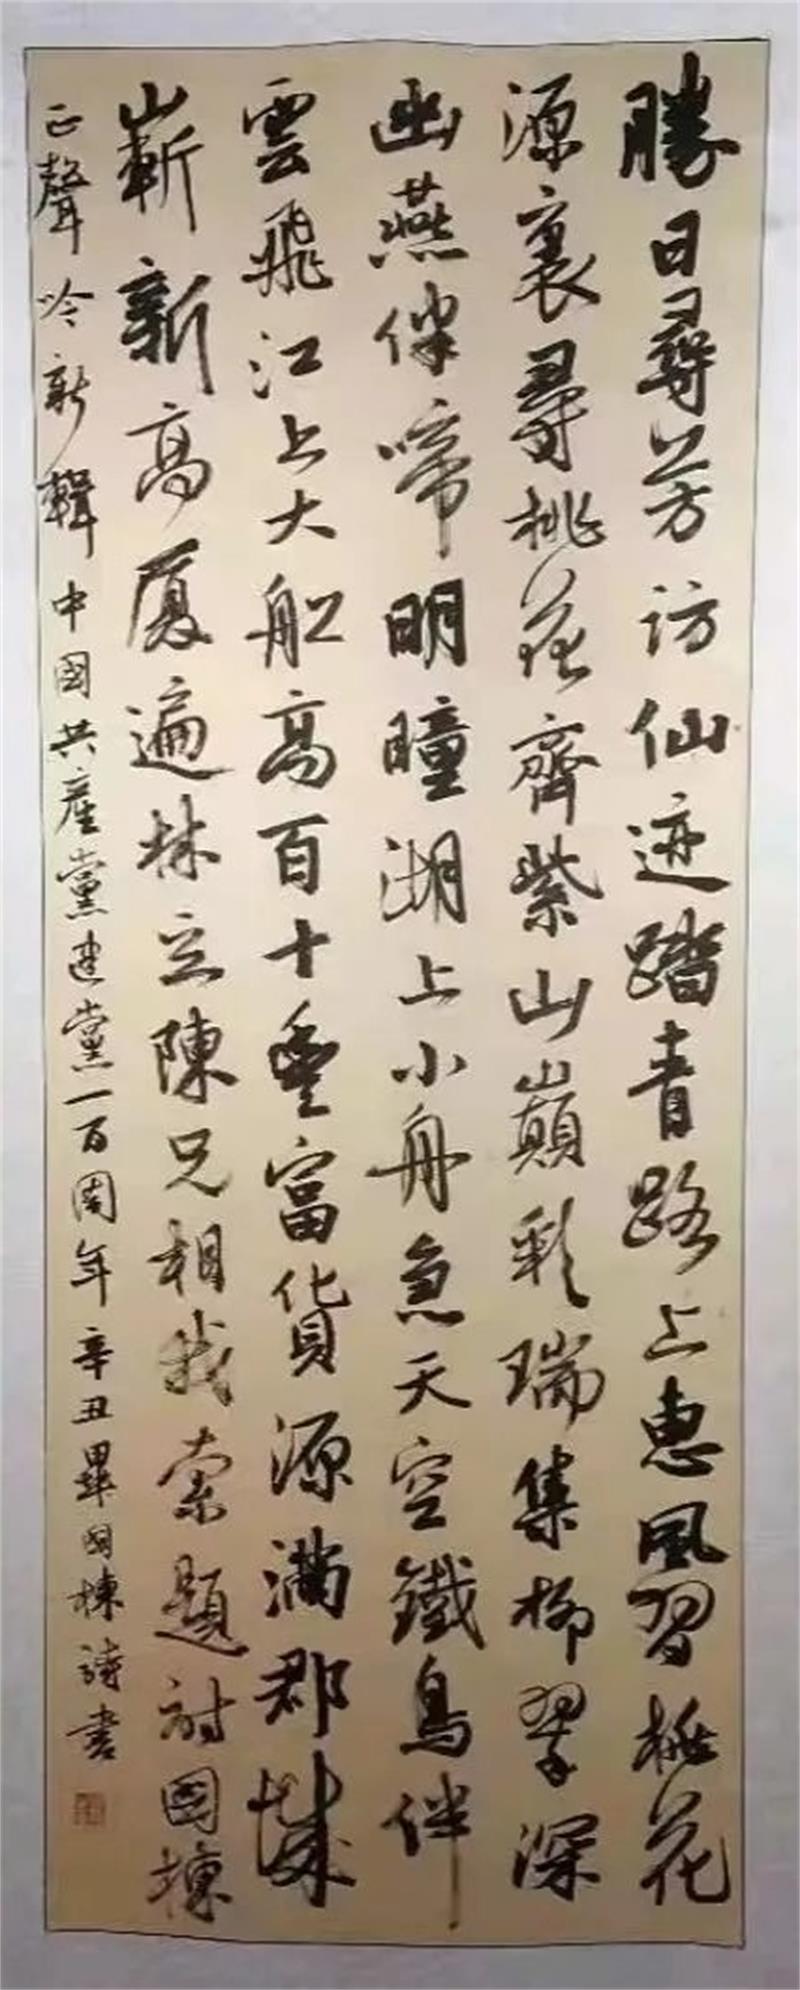 勝日尋芳访仙迹踏青路上惠風習桃花
源裏尋桃花齊紫山巔彩瑞集柳翠深
幽燕伴啼明瞳湖上小舟急天空鐵鳥伴
雲飛江上大船高百十豐富貨源满郡城
嶄新高厦遍林立陳兄相我索題詩國棟
正聲吟新輯中國共産黨建黨一百周年辛丑畢國棟詩書